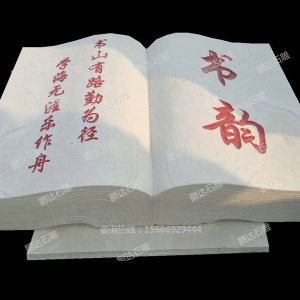 书山有路勤为径
学海无涯乐作舟
书韵
鹏达石雕
鹏达石雕
鹏达石雕
鹏达石雕
咨询热线：15666929444